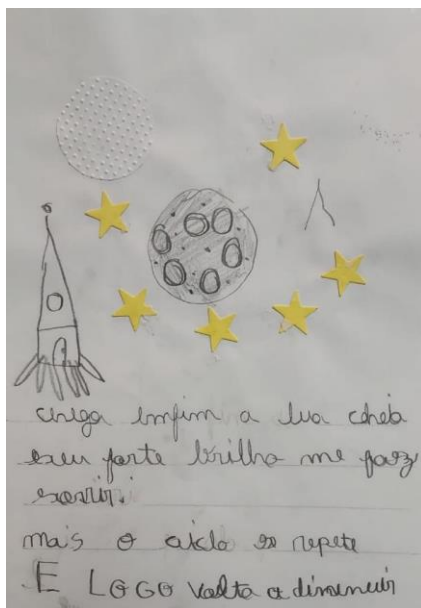 chega emfim a lua cheia
seu forte brilho me faz
sorrir.
mais o ciclo se repete
E LOGO volta a diminuir